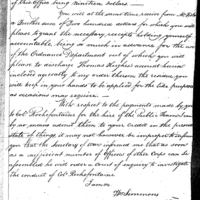 of this office being nineteen dollars —
You will at the same time receive from
a further sum of Two hundred dollars for which you will
please to grant the necessary receipt holding yourself
accountable, being so much in advance for the use
of the Ordnance Department out of which you will
please to discharge Thomas Hughes amount herewith
enclosed agreeably to my order thereon the residue you
will keep in your hands to be applied for the like purposes
as occasions may require.
With respect to the payments made by you
to Col Rochefontaine for the hire of the Public
by no means admit them to your Credit in the present
state of things it may not however be improper to inform
you that the Secretary of War informed me that as soon
as a sufficient number of Officers of other Corps can be
assembled he will order a Court of enquiry to investigate
the conduct of Col Rochefontaine
I am &c
Wm Simmons